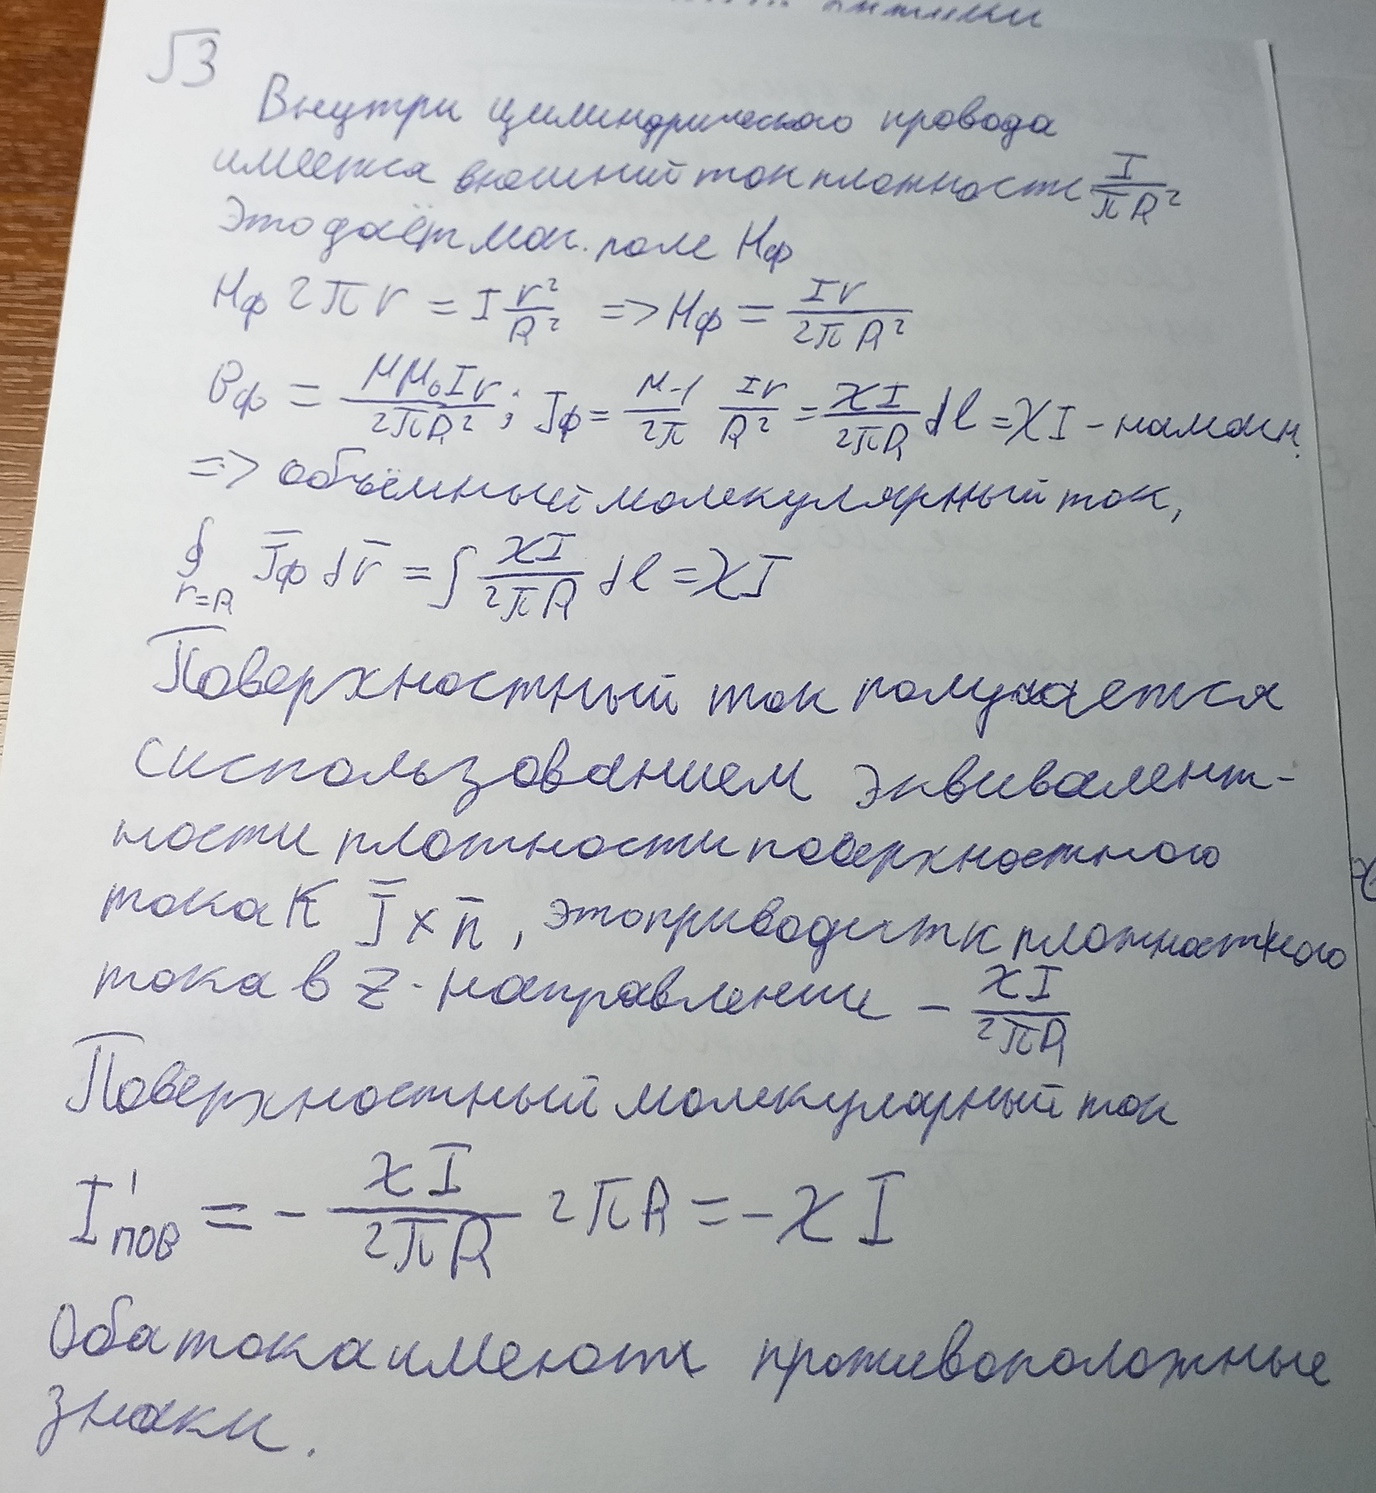 √3
Внутри цилиндрического провода
имеется внешний ток плотности I/πR²
Это даёт маг. поле Hφ
Hφ 2πr = I r²/R² => Hφ = Ir/2πR²
Bφ = μμ₀Ir/2πR²; Jφ = μ-1/2π Ir/R² = χI/2πR dl = χI - намагн.
=> объёмный молекулярный ток,
∮ r=R J̄φ dr̄ = ∫ χI/2πR dl = χI
Поверхностный ток получается
с использованием эквивалент-
ности плотности поверхностного
тока к J̄ × n̄, это приводит к плотностного
тока в z-направлении - χI/2πR
Поверхностный молекулярный ток
I'пов = - χI/2πR 2πR = -χI
Оба тока имеют противоположные
знаки.